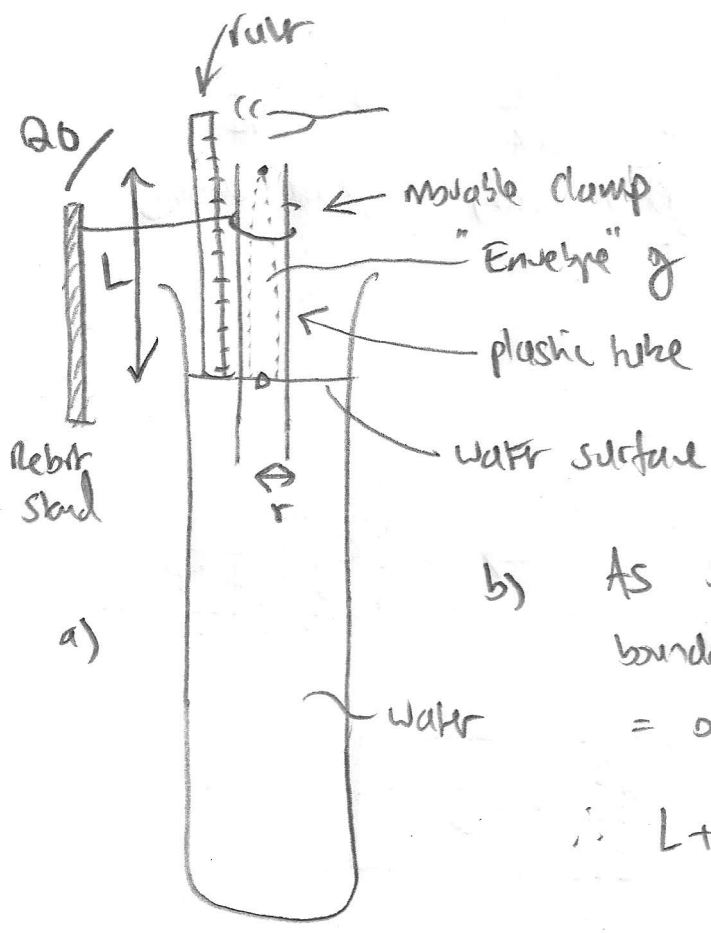 ruler
Q0/
movable clamp
"Envelope" of
L
plastic tube
water surface
Retort
stand
r
b) As
a)
bounda
water
= 0
∴ L+